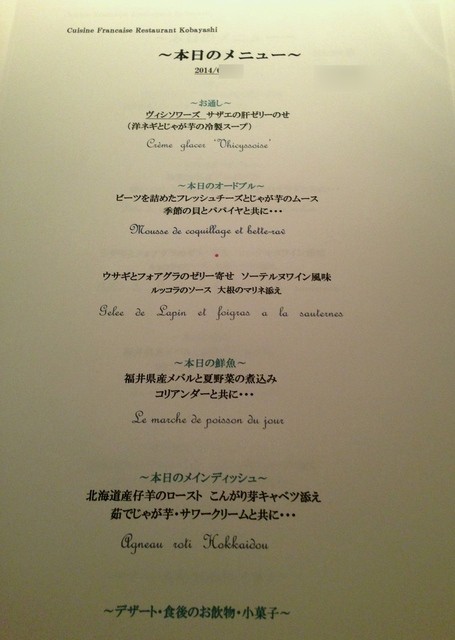 Cuisine Francaise Restaurant Kobayashi
～本日のメニュー～
2014/
～お通し～
ヴィシソワーズ サザエの肝ゼリーのせ
（洋ネギとじゃが芋の冷製スープ）
Crème glacer "Vhicyssoise"
～本日のオードブル～
ビーツを詰めたフレッシュチーズとじゃが芋のムース
季節の貝とパパイヤと共に・・・
Mousse de coquillage et bette-rav
*
ウサギとフォアグラのゼリー寄せ ソーテルヌワイン風味
ルッコラのソース 大根のマリネ添え
Gelee de Lapin et foigras a la sauternes
～本日の鮮魚～
福井県産メバルと夏野菜の煮込み
コリアンダーと共に・・・
Le marche de poisson du jour
～本日のメインディッシュ～
北海道産仔羊のロースト こんがり芽キャベツ添え
茹でじゃが芋・サワークリームと共に・・・
Agneau roti Hokkaidou
～デザート・食後のお飲物・小菓子～